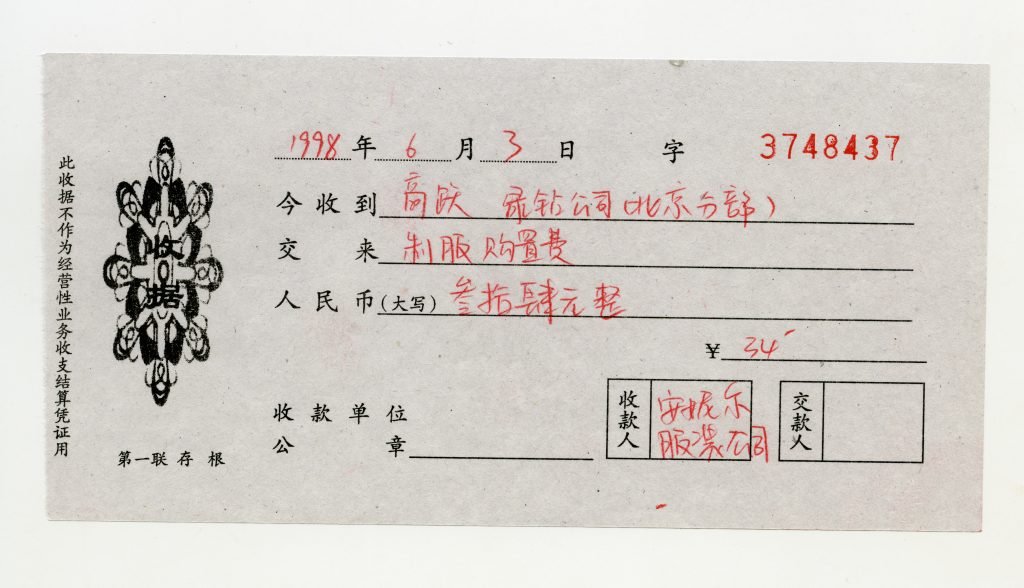 此收据不作为经营性业务收支结算凭证用
收据
第一联 存 根
1998 年 6 月 3 日 字 3748437
今收到 高跃 绿钻公司(北京分部)
交来 制服购置费
人民币(大写) 叁拾肆元整
¥ 34
收款单位
公章
收款人
安妮尔
服装公司
交款人